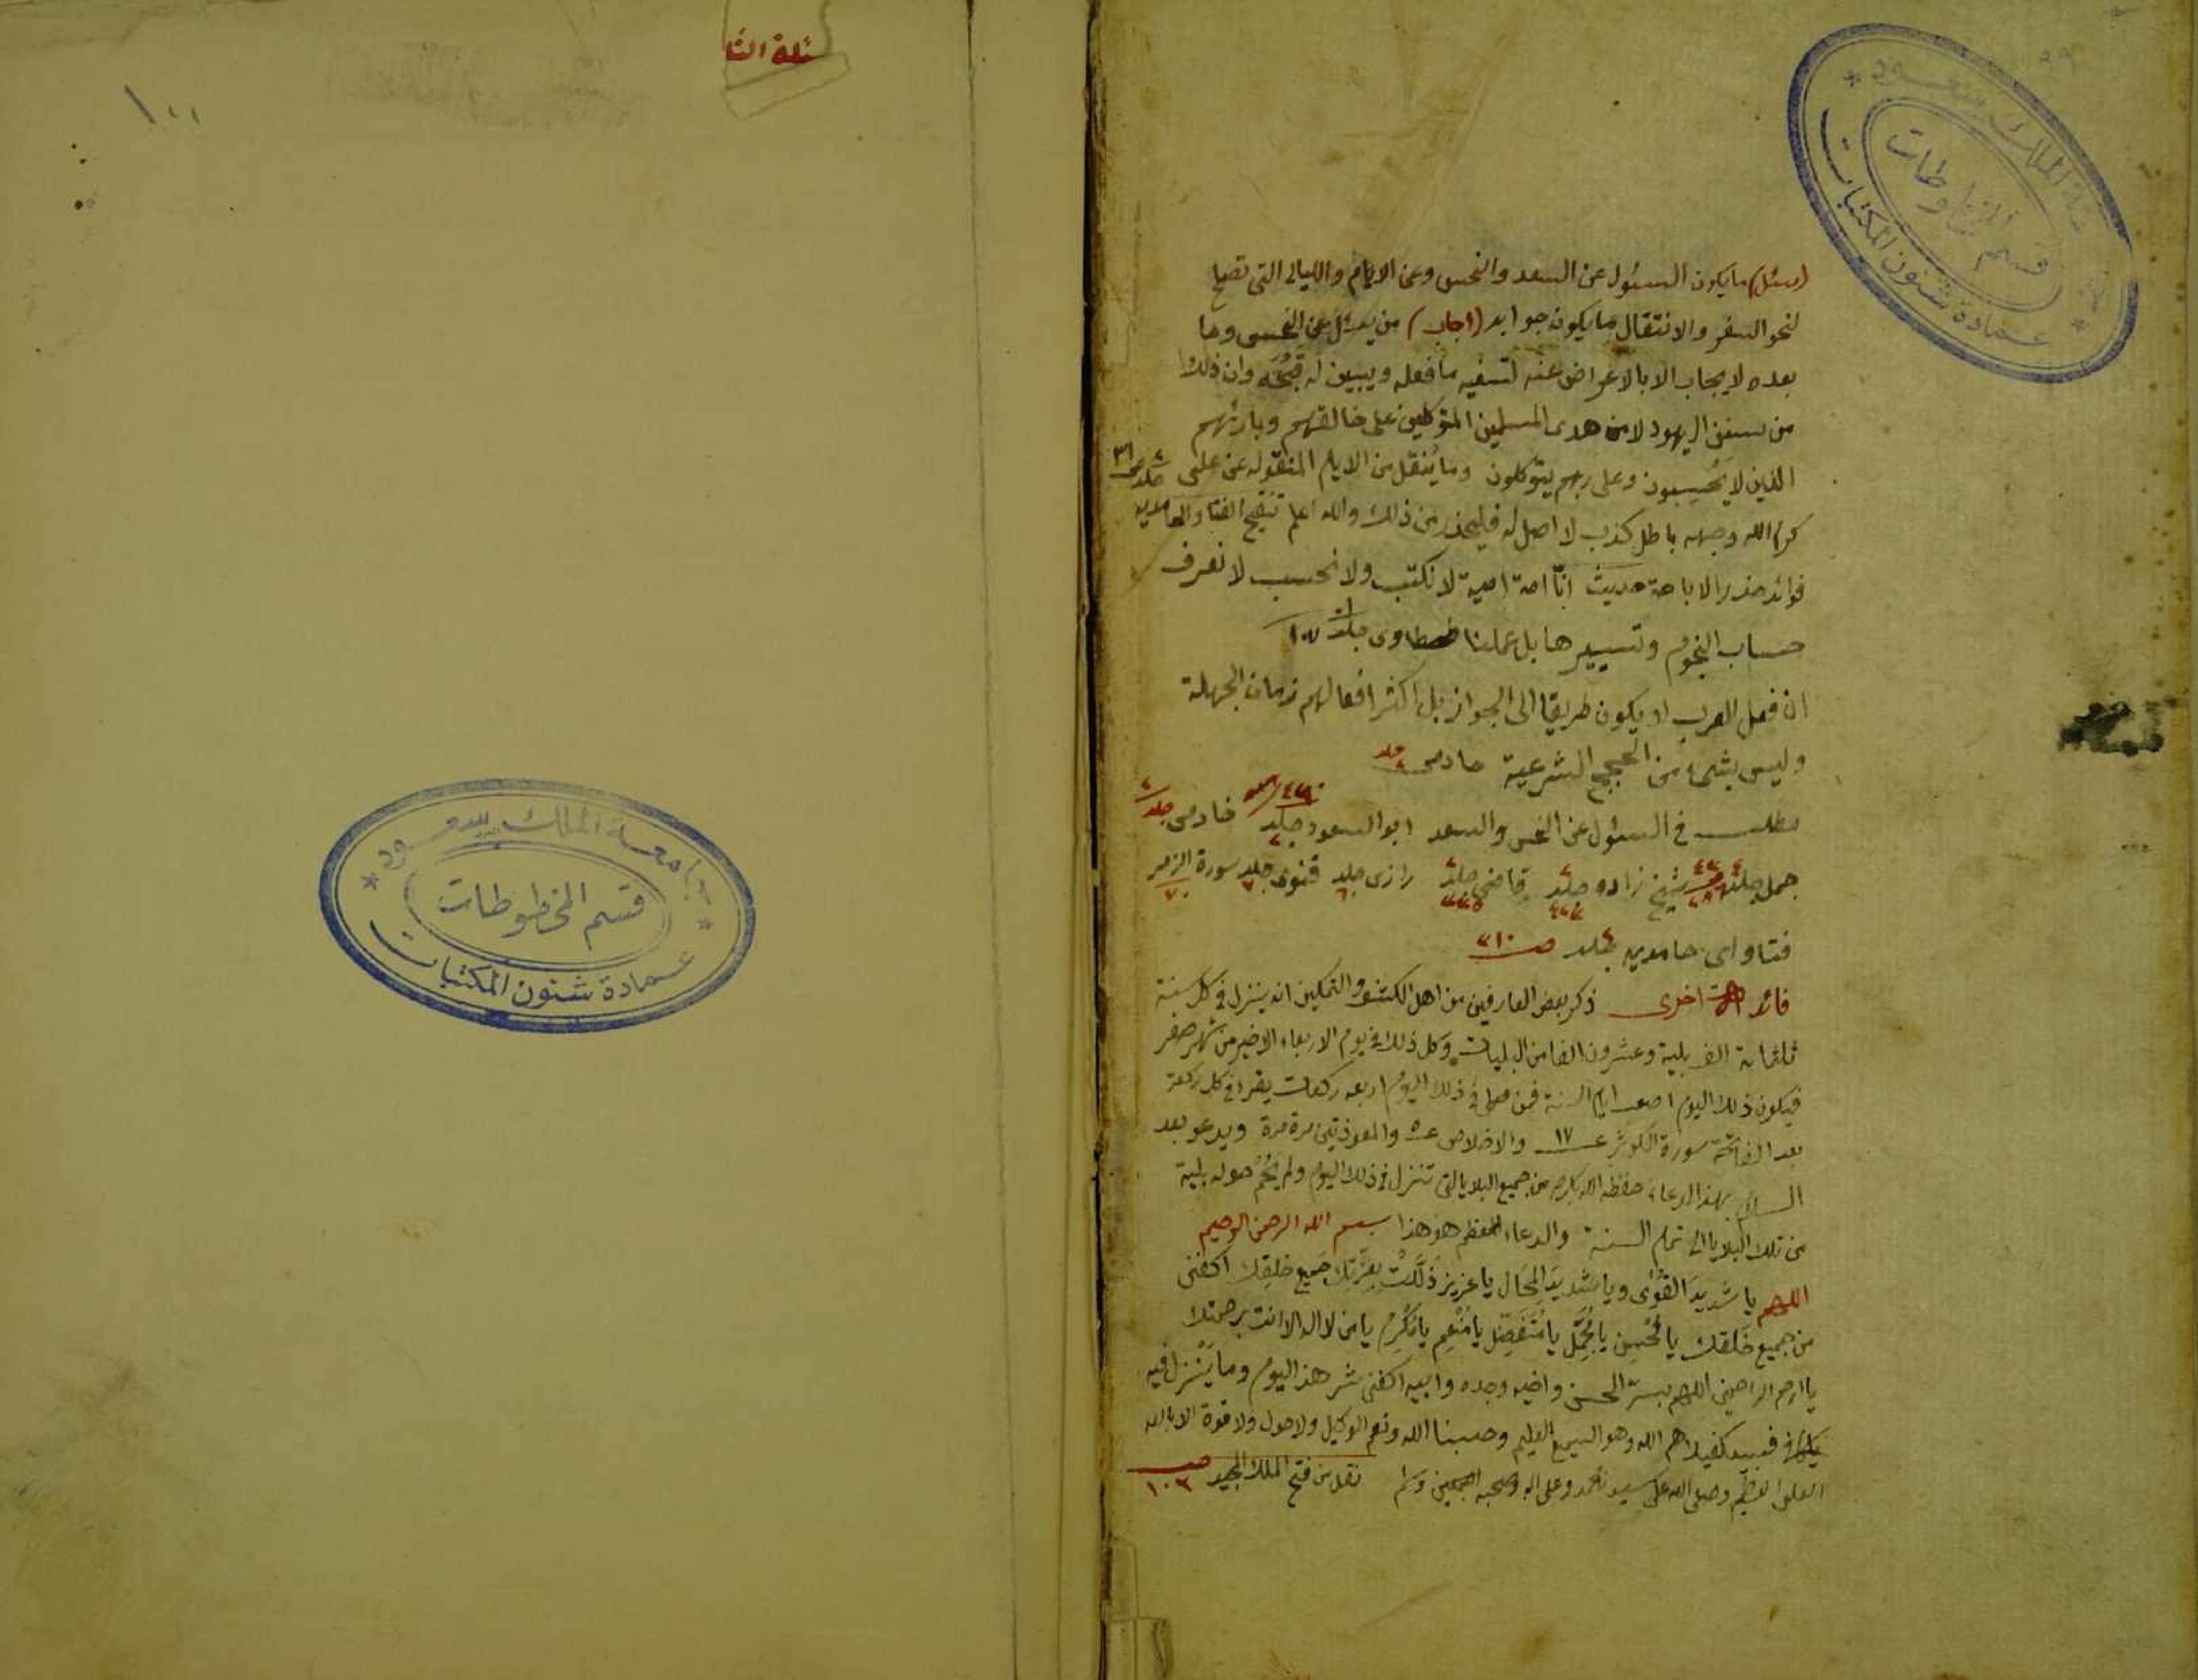 (سئل) ما يكون السئول عن السعد والنحس وعن الايام والليالى التى تصلح
لنحو السفر والانتقال ما يكون جوابه (اجاب) من يسئل عن النحس وما
بعده لا يجاب الا بالاعراض عنه لتسفيه ما فعله ويبين له قبحه وان ذلك
من سنن اليهود لا من هدى المسلمين المتوكلين على خالقهم وبارئهم
الذين لا يحسبون وعلى ربهم يتوكلون وما ينقل من الايام المنقوله عن على
كرم الله وجهه باطل كذب لا اصل له فليحذر من ذلك والله اعلم تنقيح الفتاوالحامديه
فوائد حذر الاباحة حديث انا امة امية لا نكتب ولا نحسب لا نعرف
حساب النجوم وتسييرها بل عملنا طحطاوى جلد
ان فعل العرب لا يكون طريقا الى الجواز بل اكثر افعالهم زمان الجهلة
وليس بشىء من الحجج الشرعية خادمى جلد
مطلب فى السئول عن النحس والسعد ابو السعود جلد خادمى جلد
جمل جلد شيخ زاده جلد قاضى جلد رازى جلد قنوى جلد سورة الزمر
فتاواى حامديه جلد
فائدة اخرى ذكر بعض العارفين من اهل الكشف والتمكين انه ينزل فى كل سنة
ثلثمائة الف بلية وعشرون الفا من البليات وكل ذلك فى يوم الاربعاء الاخير من شهر صفر
فيكون ذلك اليوم اصعب ايام السنة فمن صلى فى ذلك اليوم اربعه ركعات يقرا فى كل ركعة
بعد الفاتحة سورة الكوثر ١٧ والاخلاص ٥ والمعوذتين مرة مرة ويدعو بعد
السلام بهذا الدعاء حفظه الله بكرمه من جميع البلايا التى تنزل فى ذلك اليوم ولم يحم حوله بلية
من تلك البلايا الى تمام السنة والدعاء المعظم هو هذا بسم الله الرحمن الرحيم
اللهم يا شديد القوى ويا شديد المحال يا عزيز ذلت بعزتك جميع خلقك اكفنى
من جميع خلقك يا محسن يا مجمل يا متفضل يا منعم يا مكرم يا من لا اله الا انت برحمتك
يا ارحم الراحمين اللهم بسر الحسن واخيه وجده وابيه اكفنى شر هذا اليوم وما ينزل فيه
يا كافى فسيكفيكهم الله وهو السميع العليم وحسبنا الله ونعم الوكيل ولا حول ولا قوة الا بالله
العلى العظيم وصلى الله على سيدنا محمد وعلى اله وصحبه اجمعين وسلم نقل من فتح الملك المجيد صـ ١٠٢
جامعة الملك سعود
قسم المخطوطات
عمادة شئون المكتبات
جامعة الملك سعود
قسم المخطوطات
عمادة شئون المكتبات